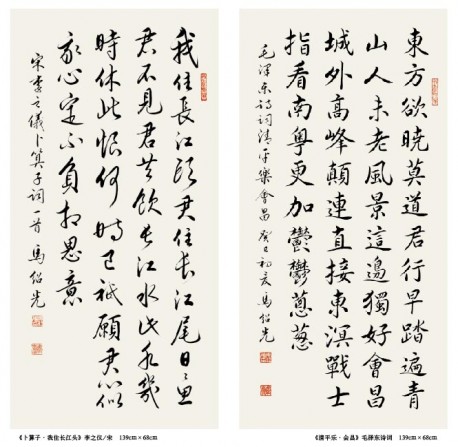 我住長江頭君住長江尾日日思
君不見君共飲長江水此水幾
時休此恨何時已祗願君心似
我心定不負相思意
宋李之儀卜算子詞一首 馬紹光
《卜算子·我住长江头》李之仪/宋 139cm×68cm
東方欲曉莫道君行早踏遍青
山人未老風景這邊獨好會昌
城外高峰顛連直接東溟戰士
指看南粵更加鬱鬱蔥蔥
毛澤东詩詞清平樂會昌 癸巳初夏馬紹光
《清平乐·会昌》毛泽东诗词 139cm×68cm